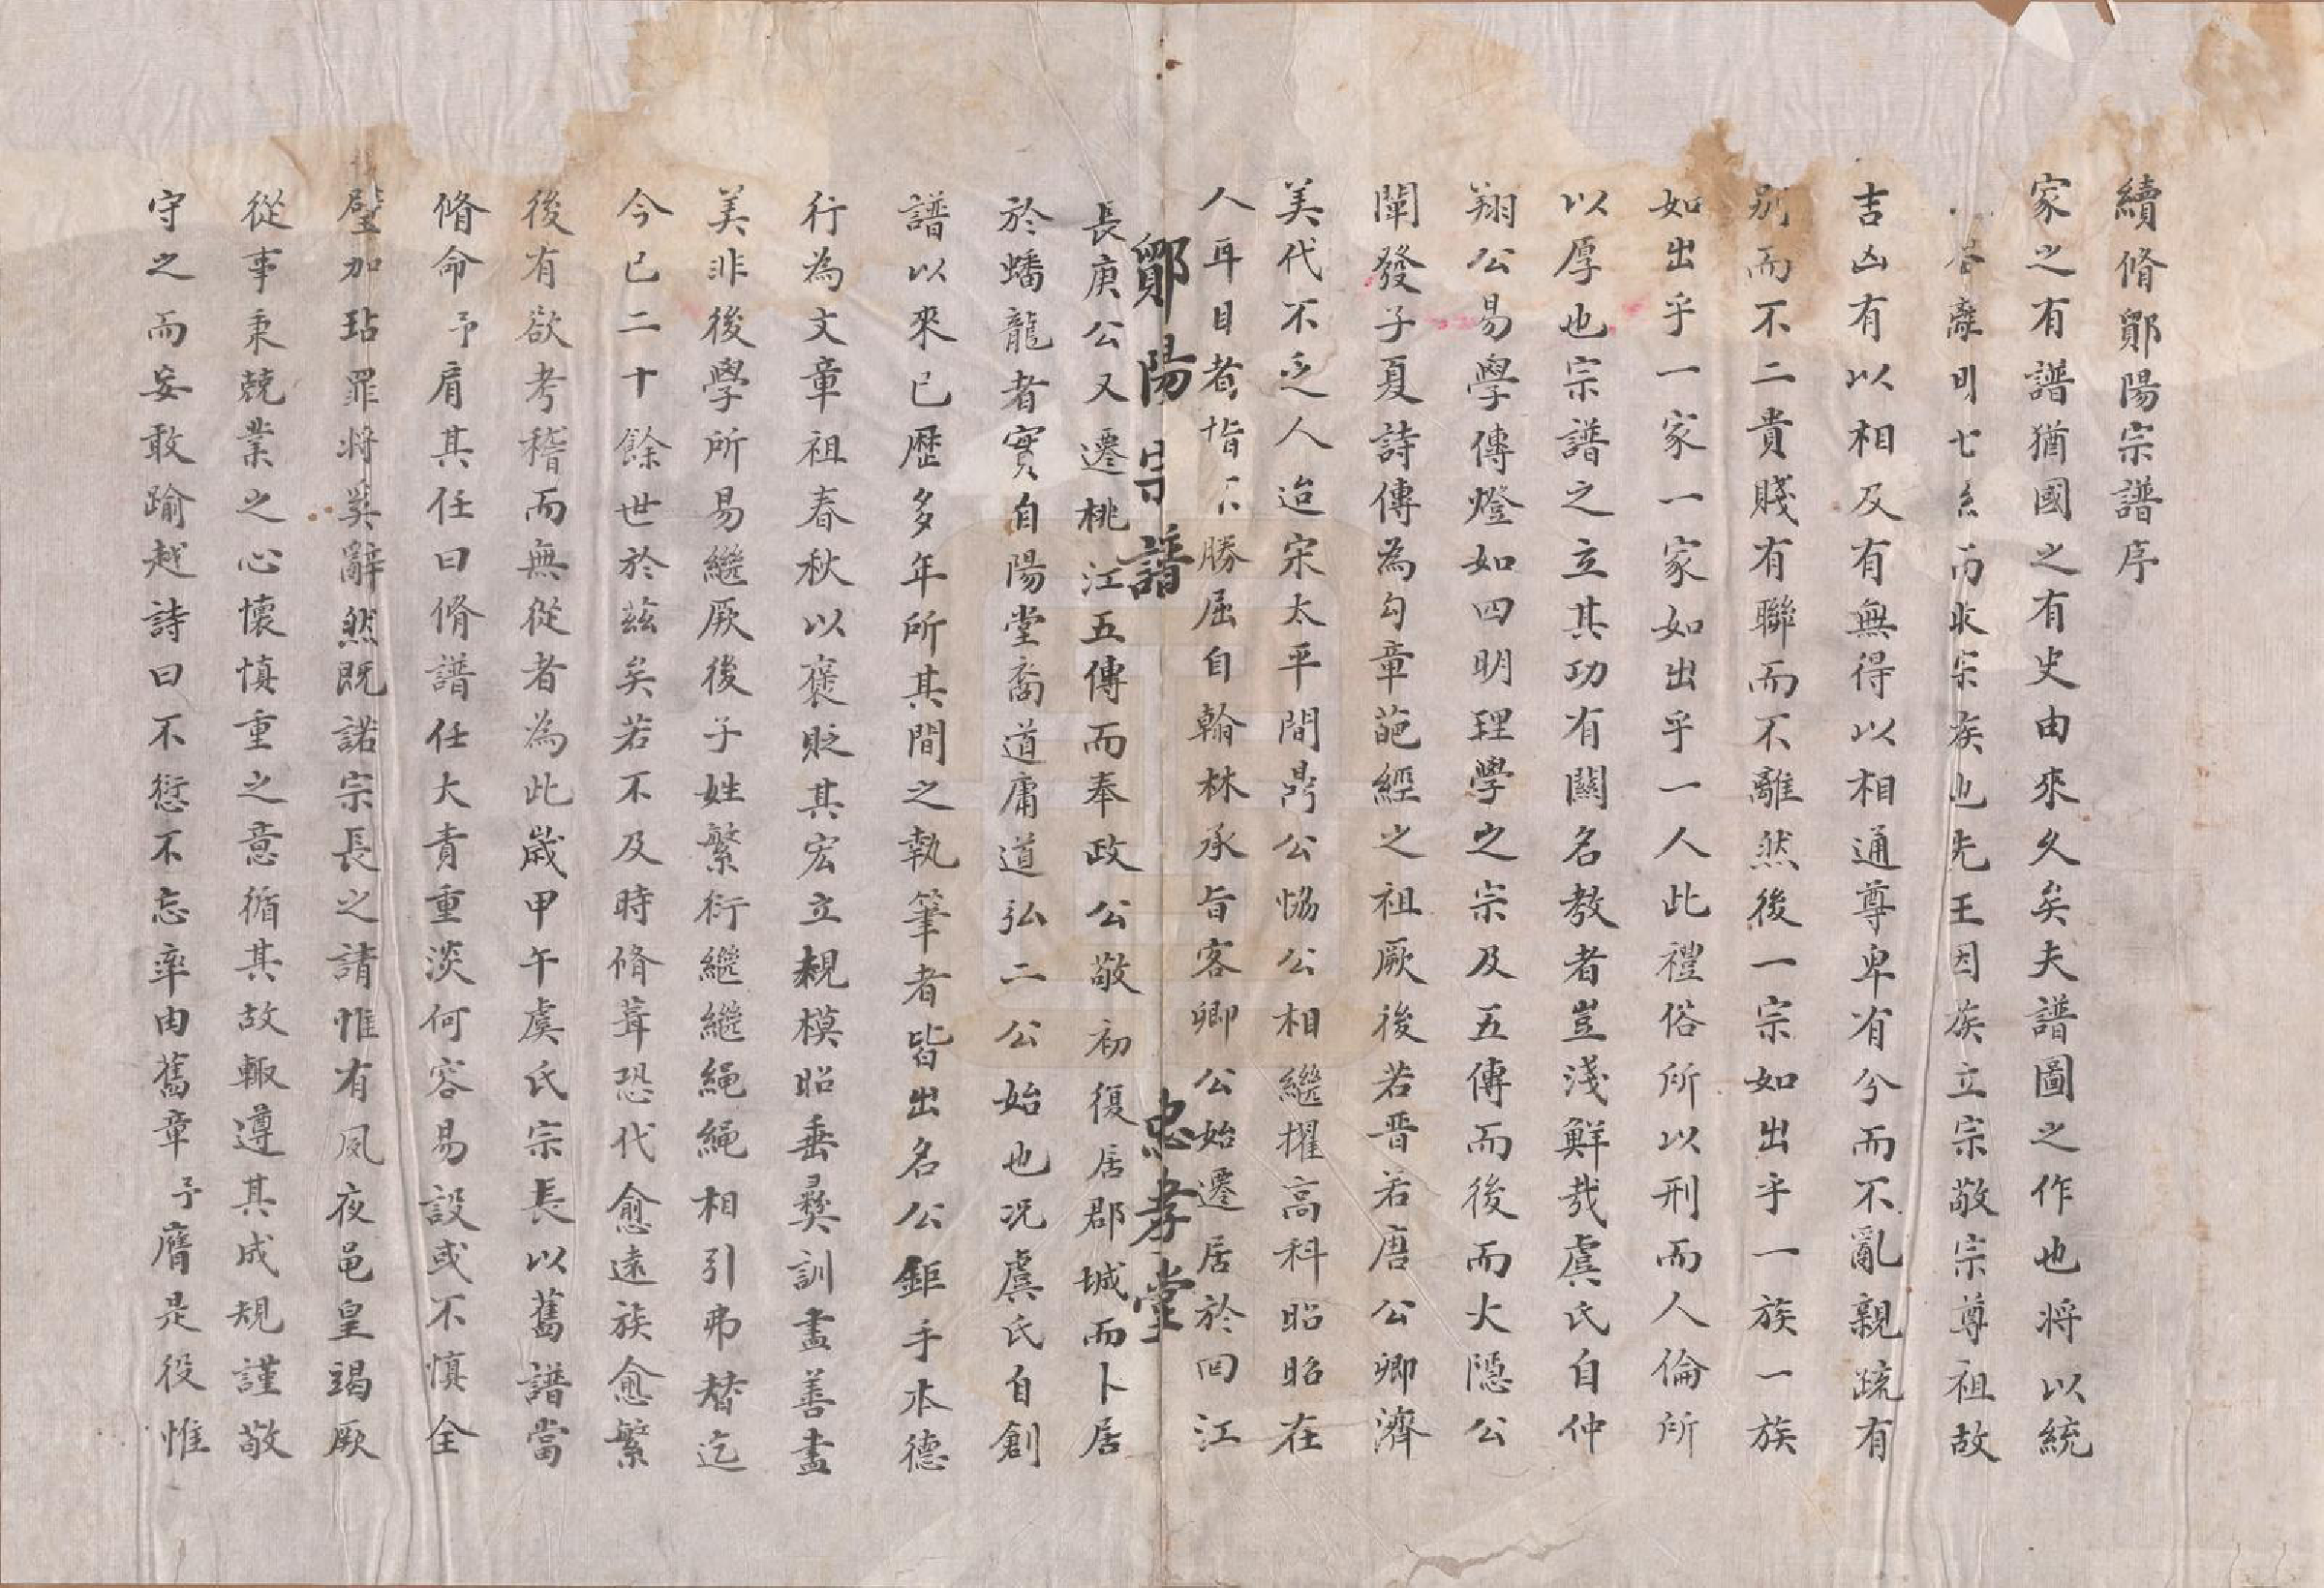 續脩鄮陽宗譜序
家之有譜猶國之有史由來久矣夫譜圖之作也將以統
離明七而收宗族也先王因族立宗敬宗尊祖故
吉凶有以相及有無得以相通尊卑有分而不亂親疏有
别而不二貴賤有聯而不離然後一宗如出乎一族一族
如出乎一家一家如出乎一人此禮俗所以刑而人倫所
以厚也宗譜之立其功有關名教者豈淺鮮哉虞氏自仲
翔公易學傳燈如四明理學之宗及五傳而後而大隱公
闡發子夏詩傳為勾章葩經之祖厥後若晋若唐公卿濟
美代不乏人迨宋太平間公恊公相繼擢高科昭昭在
人耳目者皆不勝屈自翰林承旨客卿公始遷居於回江
鄮陽宗譜 忠孝堂
長庚公又遷桃江五傳而奉政公敬初復居郡城而卜居
於蟠龍者實自陽堂喬道庸道弘二公始也况虞氏自創
譜以來已歷多年所其間之執筆者皆出名公鉅手本德
行為文章祖春秋以褒貶其宏立規模昭垂彝訓盡善盡
美非後學所易繼厥後子姓繁衍繼繼繩繩相引弗替迄
今已二十餘世於茲矣若不及時脩葺恐代愈遠族愈繁
後有欲考稽而無從者為此歲甲午虞氏宗長以舊譜當
脩命予肩其任曰脩譜任大責重淡何容易設或不慎全
璧加玷罪將奚辭然既諾宗長之請惟有夙夜邑皇竭厥
從事秉兢業之心懷慎重之意循其故輙遵其成規謹敬
守之而妄敢踰越詩曰不愆不忘率由舊章予膺是役惟